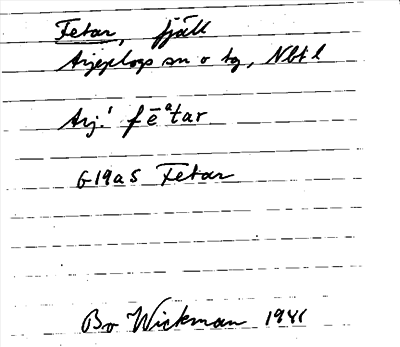 Fetar, fjäll
Arjeplogs sn o tg, Nbtl
Arj! fēᵃtar
G19aS Fetar
Bo Wickman 1941